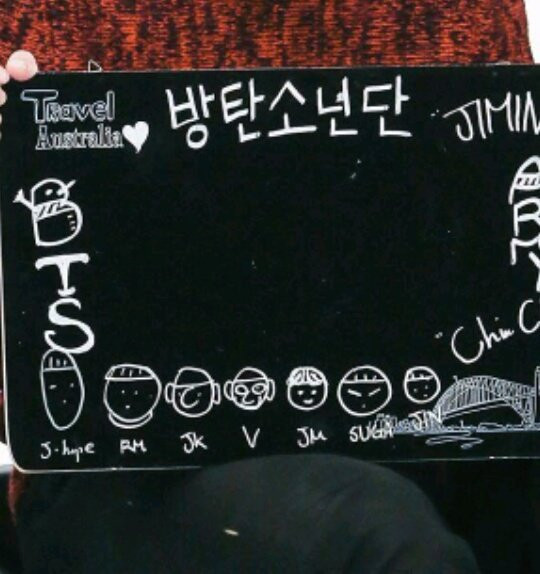 Travel
Australia
방탄소년단
JIMIN
B
T
S
A
R
M
Y
"Chim C
J-hope RM JK V JM SUGA JIN